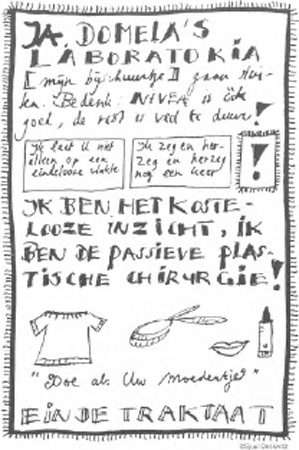 JA, DOMELA'S
LABORATORIA
[mijn bijschuurtje] gaan
ken. Bedenk: NIVEA is óók
goed, de rest is veel te duur!
Ik laat U niet
alleen op een
eindeloze vlakte
Ik zeg en her-
zeg en herzeg
nog een keer
!
IK BEN HET KOSTE-
LOOZE INZICHT, IK
BEN DE PASSIEVE PLAS-
TISCHE CHIRURGIE!
"Doe als Uw Moedertje"
EINDE TRAKTAAT